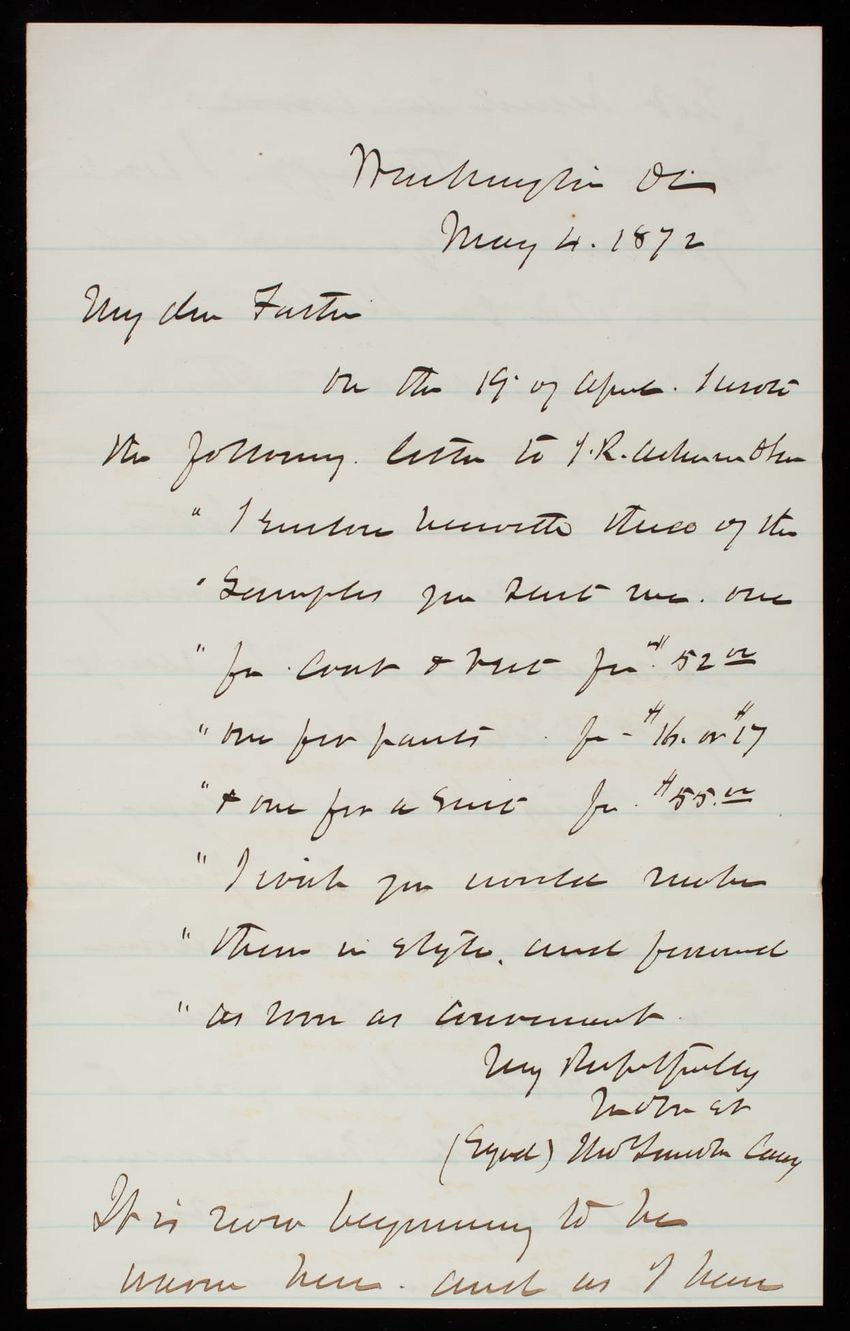 Washington DC
May 4. 1872
My dear Foster
On the 19th of April. I wrote
the following. letter to J. R. & Son
" I enclose herewith three of the
" Samples you sent me. one
" for Coat & Vest for $52 00
" one for pants for - $16. or $17
" & one for a Suit for. $55.00
" I wish you would make
" them in style. and forward
" as soon as convenient.
Very Respectfully
(Signed) Thos Lincoln Casey
It is now beginning to be
warm here. and as I have